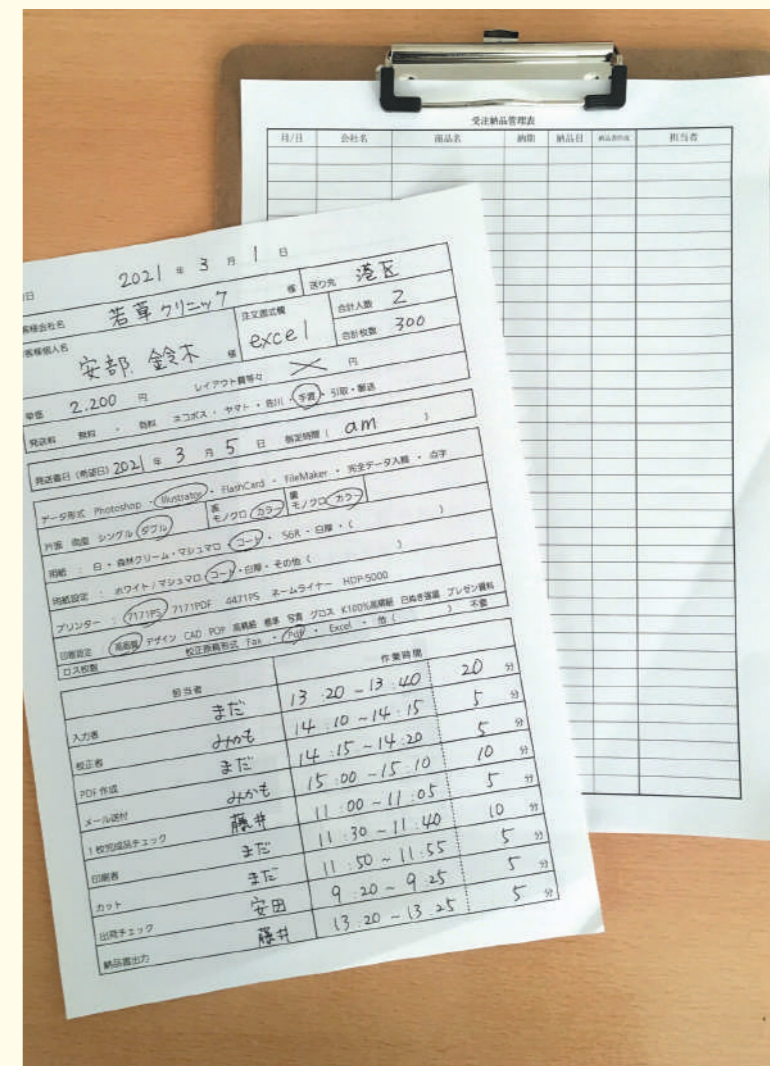 受注納品管理表
月/日 会社名 商品名 納期 納品日 納品書作成 担当者
日 2021 年 3 月 1 日
客様会社名 若草クリニック 様 送り先 港区
客様個人名 安部. 鈴木 様 注文書式欄 excel 合計人数 2
合計枚数 300
単価 2.200 円 レイアウト費等々 × 円
発送料 無料 ・ 有料 ネコポス ・ ヤマト ・ 佐川 ・ 手渡 ・ 引取 ・ 郵送
発送着日 (希望日) 2021 年 3 月 5 日 指定時間 ( am )
データ形式 Photoshop ・ Illustrator ・ FlashCard ・ FileMaker ・ 完全データ入稿 ・ 点字
片面 両面 シングル ダブル 表 モノクロ カラー 裏 モノクロ カラー
用紙 : 白 ・ 森林クリーム ・ マシュマロ ・ コート ・ SGR ・ 白厚 ・ ( )
用紙設定 : ホワイト / マシュマロ コート ・ 白厚 ・ その他 ( )
プリンター : 7171PS 7171PDF 4471PS ネームライナー HDP-5000
印刷設定 : 高画質 デザイン CAD POP 高精細 標準 写真 グロス K100%高精細 白ぬき強調 プレゼン資料
ロス枚数 校正原稿形式 Fax ・ Pdf ・ Excel ・ 他 ( ) 不要
担当者 作業時間
入力者 まだ 13:20 ~ 13:40 20 分
校正者 みかも 14:10 ~ 14:15 5 分
PDF 作成 まだ 14:15 ~ 14:20 5 分
メール送付 みかも 15:00 ~ 15:10 10 分
1 枚完成品チェック 藤井 11:00 ~ 11:05 5 分
印刷者 まだ 11:30 ~ 11:40 10 分
カット まだ 11:50 ~ 11:55 5 分
出荷チェック 安田 9:20 ~ 9:25 5 分
納品書出力 藤井 13:20 ~ 13:25 5 分